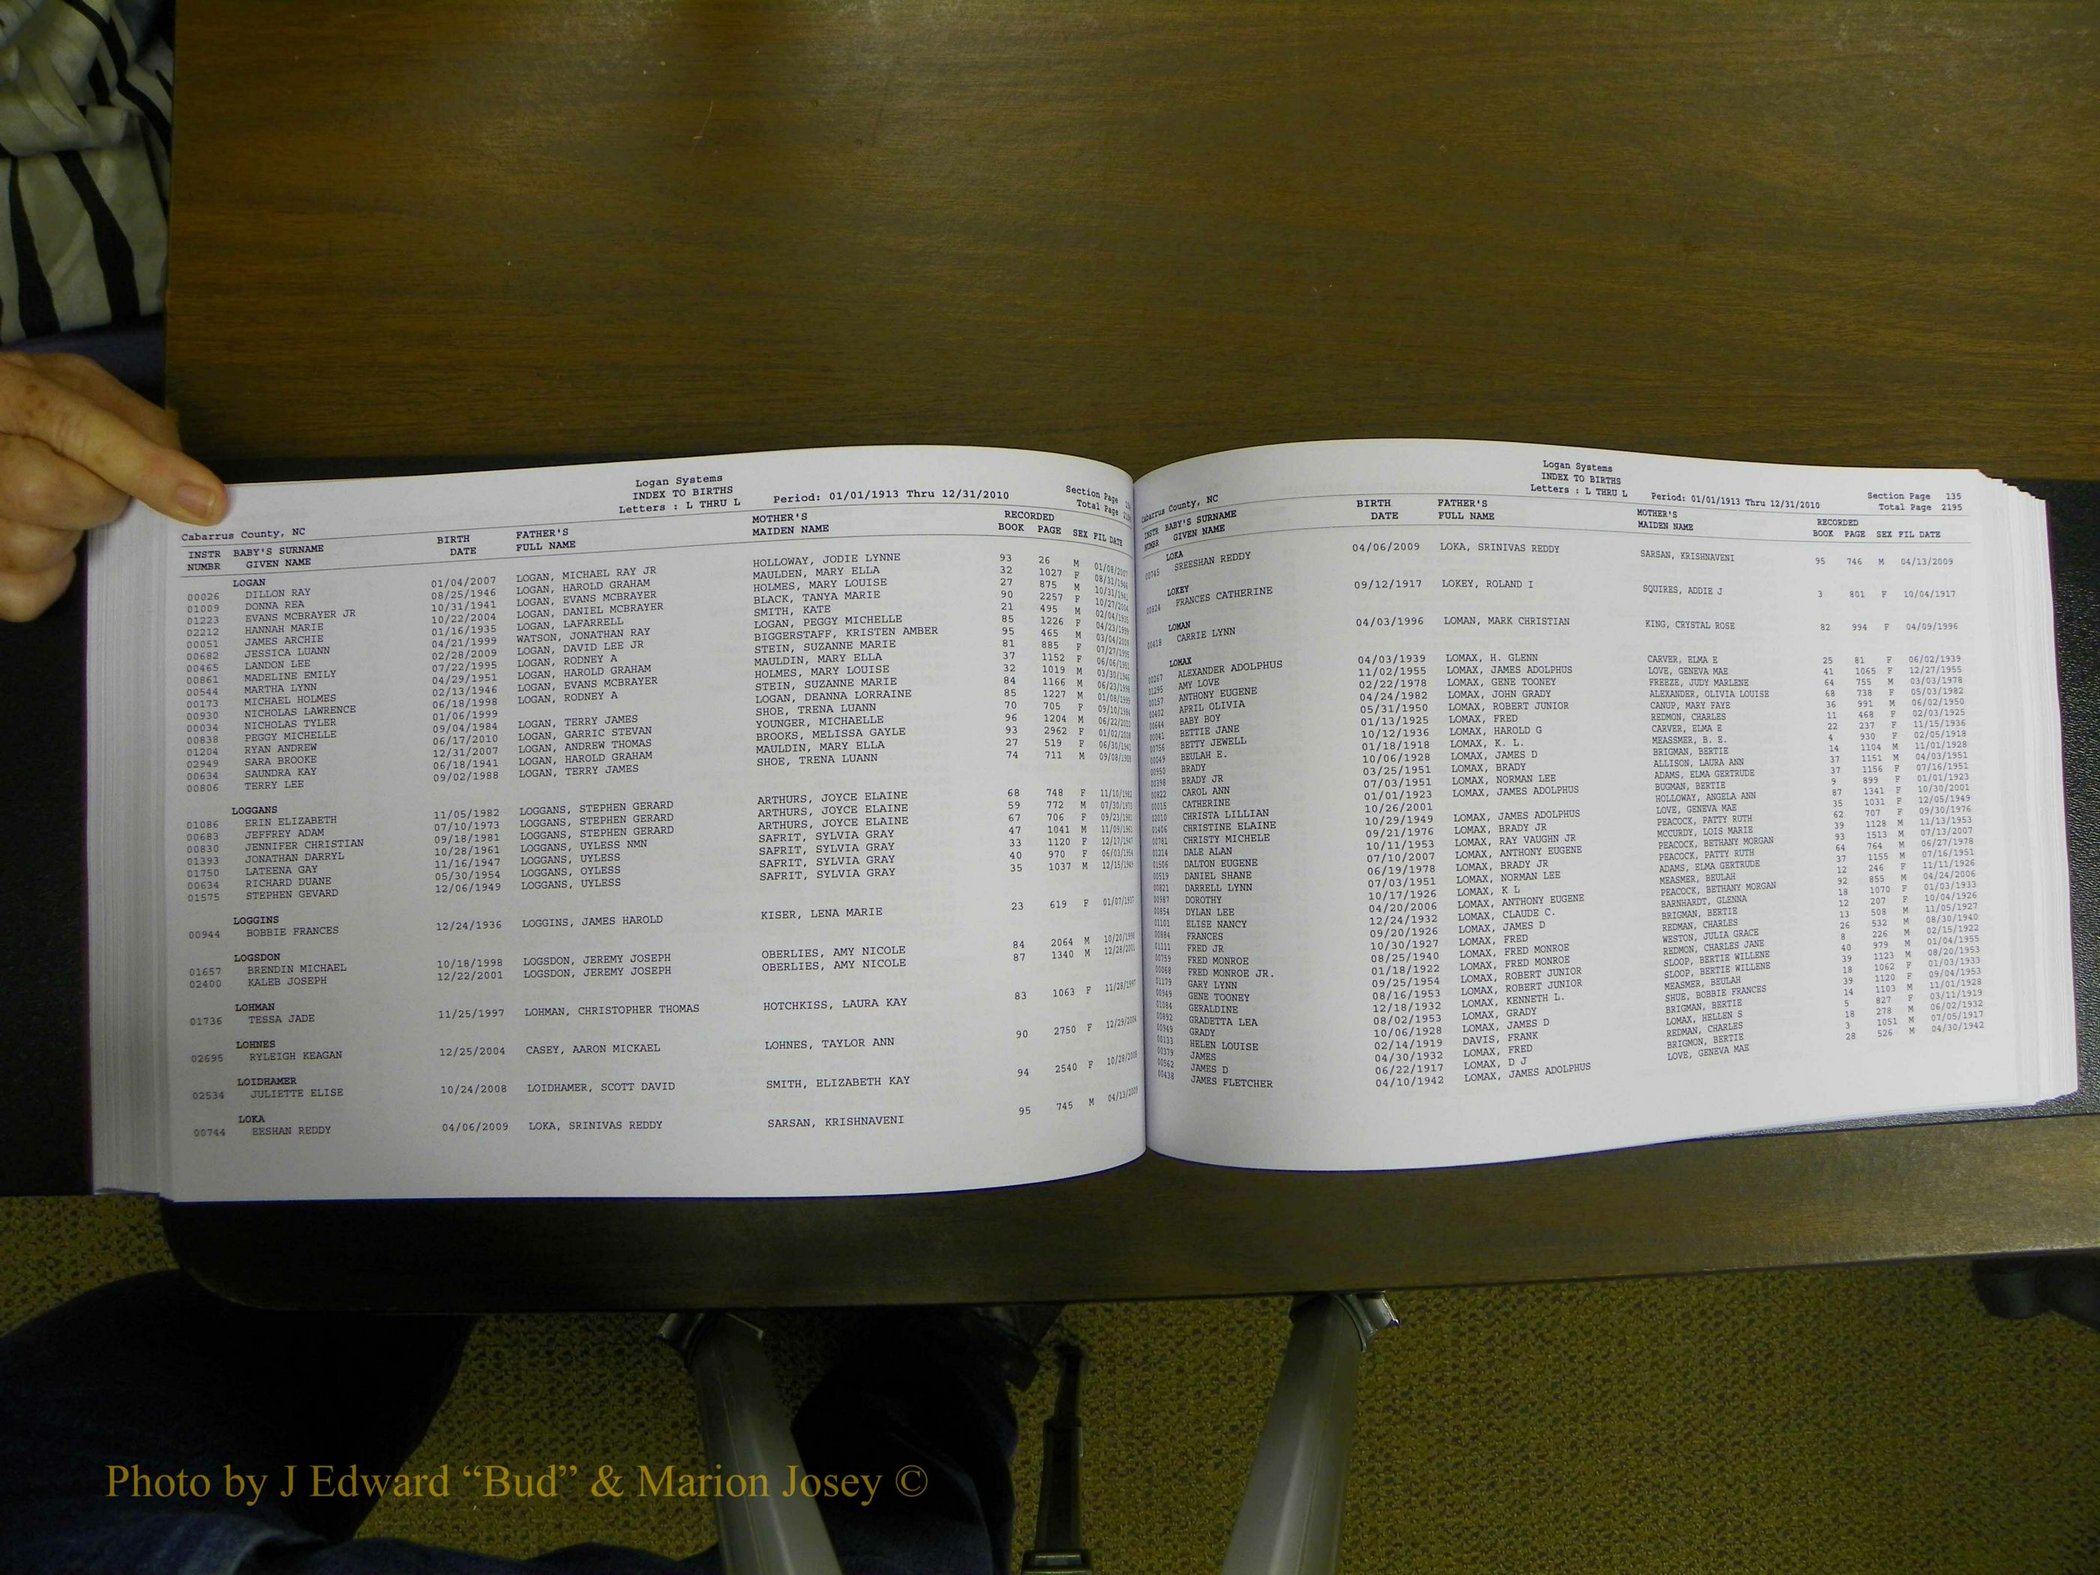 Logan Systems
INDEX TO BIRTHS
Letters : L THRU L
Period: 01/01/1913 Thru 12/31/2010
Section Page
Total Page
Cabarrus County, NC
INSTR BABY'S SURNAME BIRTH FATHER'S MOTHER'S RECORDED
NUMBR GIVEN NAME DATE FULL NAME MAIDEN NAME BOOK PAGE SEX FIL DATE
LOGAN
00026 DILLON RAY 01/04/2007 LOGAN, MICHAEL RAY JR HOLLOWAY, JODIE LYNNE 93 26 M 01/08/2007
01009 DONNA REA 08/25/1946 LOGAN, HAROLD GRAHAM MAULDEN, MARY ELLA 32 1027 F 08/31/1946
01223 EVANS MCBRAYER JR 10/31/1941 LOGAN, EVANS MCBRAYER HOLMES, MARY LOUISE 27 875 M 10/31/1941
02212 HANNAH MARIE 10/22/2004 LOGAN, DANIEL MCBRAYER BLACK, TANYA MARIE 90 2257 F 10/27/2004
00051 JAMES ARCHIE 01/16/1935 LOGAN, LAFARRELL SMITH, KATE 21 495 M 02/04/1935
00682 JESSICA LUANN 04/21/1999 WATSON, JONATHAN RAY LOGAN, PEGGY MICHELLE 85 1226 F 04/23/1999
00465 LANDON LEE 02/28/2009 LOGAN, DAVID LEE JR BIGGERSTAFF, KRISTEN AMBER 95 465 M 03/04/2009
00861 MADELINE EMILY 07/22/1995 LOGAN, RODNEY A STEIN, SUZANNE MARIE 81 885 F 07/27/1995
00544 MARTHA LYNN 04/29/1951 LOGAN, HAROLD GRAHAM MAULDIN, MARY ELLA 37 1152 F 06/06/1951
00173 MICHAEL HOLMES 02/13/1946 LOGAN, EVANS MCBRAYER HOLMES, MARY LOUISE 32 1019 M 03/30/1946
00930 NICHOLAS LAWRENCE 06/18/1998 LOGAN, RODNEY A STEIN, SUZANNE MARIE 84 1166 M 06/23/1998
00034 NICHOLAS TYLER 01/06/1999 LOGAN, DEANNA LORRAINE 85 1227 M 01/08/1999
00838 PEGGY MICHELLE 09/04/1984 LOGAN, TERRY JAMES SHOE, TRENA LUANN 70 705 F 09/10/1984
01204 RYAN ANDREW 06/17/2010 LOGAN, GARRIC STEVAN YOUNGER, MICHAELLE 96 1204 M 06/22/2010
02949 SARA BROOKE 12/31/2007 LOGAN, ANDREW THOMAS BROOKS, MELISSA GAYLE 93 2962 F 01/02/2008
00634 SAUNDRA KAY 06/18/1941 LOGAN, HAROLD GRAHAM MAULDIN, MARY ELLA 27 519 F 06/30/1941
00806 TERRY LEE 09/02/1988 LOGAN, TERRY JAMES SHOE, TRENA LUANN 74 711 M 09/08/1988
LOGGANS
01086 ERIN ELIZABETH 11/05/1982 LOGGANS, STEPHEN GERARD ARTHURS, JOYCE ELAINE 68 748 F 11/10/1982
00683 JEFFREY ADAM 07/10/1973 LOGGANS, STEPHEN GERARD ARTHURS, JOYCE ELAINE 59 772 M 07/30/1973
00830 JENNIFER CHRISTIAN 09/18/1981 LOGGANS, STEPHEN GERARD ARTHURS, JOYCE ELAINE 67 706 F 09/23/1981
01393 JONATHAN DARRYL 10/28/1961 LOGGANS, UYLESS NMN SAFRIT, SYLVIA GRAY 47 1041 M 11/09/1961
01750 LATEENA GAY 11/16/1947 LOGGANS, UYLESS SAFRIT, SYLVIA GRAY 33 1120 F 12/17/1947
00634 RICHARD DUANE 05/30/1954 LOGGANS, OYLESS SAFRIT, SYLVIA GRAY 40 970 F 06/03/1954
01575 STEPHEN GEVARD 12/06/1949 LOGGANS, UYLESS SAFRIT, SYLVIA GRAY 35 1037 M 12/15/1949
LOGGINS
00944 BOBBIE FRANCES 12/24/1936 LOGGINS, JAMES HAROLD KISER, LENA MARIE 23 619 F 01/07/1937
LOGSDON
01657 BRENDIN MICHAEL 10/18/1998 LOGSDON, JEREMY JOSEPH OBERLIES, AMY NICOLE 84 2064 M 10/20/1998
02400 KALEB JOSEPH 12/22/2001 LOGSDON, JEREMY JOSEPH OBERLIES, AMY NICOLE 87 1340 M 12/28/2001
LOHMAN
01736 TESSA JADE 11/25/1997 LOHMAN, CHRISTOPHER THOMAS HOTCHKISS, LAURA KAY 83 1063 F 11/28/1997
LOHNES
02695 RYLEIGH KEAGAN 12/25/2004 CASEY, AARON MICKAEL LOHNES, TAYLOR ANN 90 2750 F 12/29/2004
LOIDHAMER
02534 JULIETTE ELISE 10/24/2008 LOIDHAMER, SCOTT DAVID SMITH, ELIZABETH KAY 94 2540 F 10/28/2008
LOKA
00744 EESHAN REDDY 04/06/2009 LOKA, SRINIVAS REDDY SARSAN, KRISHNAVENI 95 745 M 04/13/2009
Logan Systems
INDEX TO BIRTHS
Letters : L THRU L
Period: 01/01/1913 Thru 12/31/2010
Section Page 135
Total Page 2195
Cabarrus County, NC
INSTR BABY'S SURNAME BIRTH FATHER'S MOTHER'S RECORDED
NUMBR GIVEN NAME DATE FULL NAME MAIDEN NAME BOOK PAGE SEX FIL DATE
LOKA
00745 SREESHAN REDDY 04/06/2009 LOKA, SRINIVAS REDDY SARSAN, KRISHNAVENI 95 746 M 04/13/2009
LOKEY
00824 FRANCES CATHERINE 09/12/1917 LOKEY, ROLAND I SQUIRES, ADDIE J 3 801 F 10/04/1917
LOMAN
00418 CARRIE LYNN 04/03/1996 LOMAN, MARK CHRISTIAN KING, CRYSTAL ROSE 82 994 F 04/09/1996
LOMAX
00267 ALEXANDER ADOLPHUS 04/03/1939 LOMAX, H. GLENN CARVER, ELMA E 25 81 F 06/02/1939
01295 AMY LOVE 11/02/1955 LOMAX, JAMES ADOLPHUS LOVE, GENEVA MAE 41 1065 F 12/27/1955
00157 ANTHONY EUGENE 02/22/1978 LOMAX, GENE TOONEY FREEZE, JUDY MARLENE 64 755 M 03/03/1978
00402 APRIL OLIVIA 04/24/1982 LOMAX, JOHN GRADY ALEXANDER, OLIVIA LOUISE 68 738 F 05/03/1982
00644 BABY BOY 05/31/1950 LOMAX, ROBERT JUNIOR CANUP, MARY FAYE 36 991 M 06/02/1950
00041 BETTIE JANE 01/13/1925 LOMAX, FRED REDMON, CHARLES 11 468 F 02/03/1925
00756 BETTY JEWELL 10/12/1936 LOMAX, HAROLD G CARVER, ELMA E 22 237 F 11/15/1936
00049 BEULAH E. 01/18/1918 LOMAX, K. L. MEASSMER, B. E. 4 930 F 02/05/1918
00950 BRADY 10/06/1928 LOMAX, JAMES D BRIGMAN, BERTIE 14 1104 M 11/01/1928
00398 BRADY JR 03/25/1951 LOMAX, BRADY ALLISON, LAURA ANN 37 1151 M 04/03/1951
00822 CAROL ANN 07/03/1951 LOMAX, NORMAN LEE ADAMS, ELMA GERTRUDE 37 1156 F 07/16/1951
00015 CATHERINE 01/01/1923 LOMAX, JAMES ADOLPHUS BUGMAN, BERTIE 9 899 F 01/01/1923
02010 CHRISTA LILLIAN 10/26/2001 HOLLOWAY, ANGELA ANN 87 1341 F 10/30/2001
01406 CHRISTINE ELAINE 10/29/1949 LOMAX, JAMES ADOLPHUS LOVE, GENEVA MAE 35 1031 F 12/05/1949
00781 CHRISTY MICHELE 09/21/1976 LOMAX, BRADY JR PEACOCK, PATTY RUTH 62 707 F 09/30/1976
01214 DALE ALAN 10/11/1953 LOMAX, RAY VAUGHN JR MCCURDY, LOIS MARIE 39 1128 M 11/13/1953
01506 DALTON EUGENE 07/10/2007 LOMAX, ANTHONY EUGENE PEACOCK, BETHANY MORGAN 93 1513 M 07/13/2007
00519 DANIEL SHANE 06/19/1978 LOMAX, BRADY JR PEACOCK, PATTY RUTH 64 764 M 06/27/1978
00821 DARRELL LYNN 07/03/1951 LOMAX, NORMAN LEE ADAMS, ELMA GERTRUDE 37 1155 M 07/16/1951
00987 DOROTHY 10/17/1926 LOMAX, K L MEASMER, BEULAH 12 246 F 11/11/1926
00854 DYLAN LEE 04/20/2006 LOMAX, ANTHONY EUGENE PEACOCK, BETHANY MORGAN 92 855 M 04/24/2006
01101 ELISE NANCY 12/24/1932 LOMAX, CLAUDE C. BARNHARDT, GLENNA 18 1070 F 01/03/1933
00884 FRANCES 09/20/1926 LOMAX, JAMES D BRIGMAN, BERTIE 12 207 F 10/04/1926
01111 FRED JR 10/30/1927 LOMAX, FRED REDMAN, CHARLES 13 508 M 11/05/1927
00759 FRED MONROE 08/25/1940 LOMAX, FRED MONROE WESTON, JULIA GRACE 26 532 M 08/30/1940
00068 FRED MONROE JR. 01/18/1922 LOMAX, FRED MONROE REDMON, CHARLES JANE 8 226 M 02/15/1922
01179 GARY LYNN 09/25/1954 LOMAX, ROBERT JUNIOR SLOOP, BERTIE WILLENE 40 979 M 01/04/1955
00949 GENE TOONEY 08/16/1953 LOMAX, ROBERT JUNIOR SLOOP, BERTIE WILLENE 39 1123 M 08/20/1953
01084 GERALDINE 12/18/1932 LOMAX, KENNETH L. MEASMER, BEULAH 18 1062 F 01/03/1933
00892 GRADETTA LEA 08/02/1953 LOMAX, GRADY SHUE, BOBBIE FRANCES 39 1120 F 09/04/1953
00949 GRADY 10/06/1928 LOMAX, JAMES D BRIGMAN, BERTIE 14 1103 M 11/01/1928
00133 HELEN LOUISE 02/14/1919 DAVIS, FRANK LOMAX, HELLEN S 5 827 F 03/11/1919
00379 JAMES 04/30/1932 LOMAX, FRED REDMAN, CHARLES 18 278 M 06/02/1932
00562 JAMES D 06/22/1917 LOMAX, D J BRIGMON, BERTIE 3 1051 M 07/05/1917
00438 JAMES FLETCHER 04/10/1942 LOMAX, JAMES ADOLPHUS LOVE, GENEVA MAE 28 526 M 04/30/1942
Photo by J Edward “Bud” & Marion Josey ©